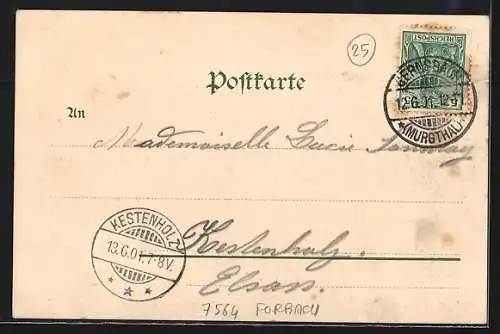 25
REICHSPOST
GERNSBACH
12.6.01. 12-9
* (MURGTHAL) *
Postkarte
An
Mademoiselle Lucie
Kestenholz
Elsass
KESTENHOLZ
13.6.01. 7-8V.
* * *
7564 FORBACH